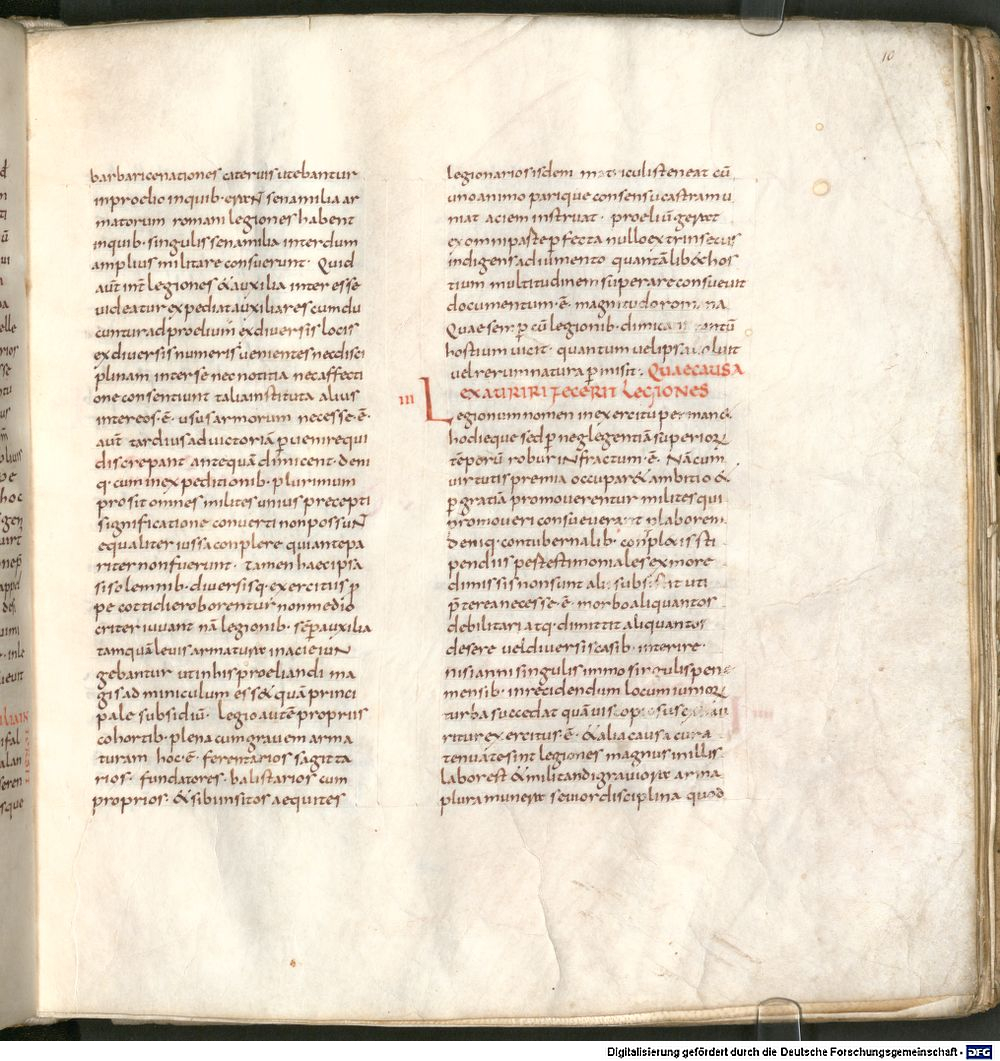 10
barbaricenationes cateruisutebantur
inproelioinquib· eraɴt senamilia ar
matorum romani legiones habent
inquib· singulissenamilia interdum
amplius militare consuerunt· Quid
aut̄ int̄ legiones &auxilia interesse
uideatur expediatauxiliarescumdu
cunturadproelium exdiuersis locis
exdiuersisnumerisuenientes necdisci
plinam interse necnotitia necaffecti
one consentiunt taliainstituta alius
intereos·ē· ususarmorum necesse·ē·
aut̄ tardiusaduictoriā p̄uenirequi
discrepant antequā dimicent· deni
q· cuminexpeditionib· plurimum
prosit omnes milites unius precepti
significatione conuerti nonpossuɴt
equaliter iussaconplere quiantepa
riternonfuerunt· tamenhaecipsa
sisolemnib· diuersisq· exercitiis p̄
pe cottidieroborentur nonmedio
criteriuuant nā legionib· sēpauxilia
tamquāleuisarmature inacieiuɴ
gebantur utinhisproeliandi ma
gisadminiculum ess& quā princi
pale subsidiū· legioautē propriis
cohortib· plena cumgrauem arma
turam hoc·ē· ferentarios sagitta
rios· fundatores· balistarios cum
proprios· &sibiinsitos aequites
legionariosisdem matriculisteneat cū
unoanimo parique consensucastramu
niat aciem instruat· proeliū gerat
exomnipasteperfecta nulloextrinsecus
indigensadiumento quantālib&hos
tium multitudinem superareconsueuit
documentum·ē· magnitudoromana
Quaesemp̄ cū legionib· dimicantū
hostium uicit· quantum uelipsauoluit
uelrerumnatura p̄misit· Quaecausa
exauriri fecerit Legiones
III
Legionumnomen inexercitupermanē·
hodieque sed p̄neglegentiāsuperior
tēperū roburiɴfractum·ē· Nācum
uirtutispremia occupar& ambitio &
p̄gratiā promouerentur militesqui
promoueri consueuerant p̄laborem
deniq· contubernalib· conplexissti
pendiis pestestimonialesexmore
dimissisnonsunt alii substituti
p̄tereanecesse·ē· morboaliquantos
debilitari atq· dimitti aliquantos
desere ueldiuersiscasib· interire·
nisiannisingulisimmosingulispen
mensib· inrecidendum locumiunior
turba succedat quāuis copiosusexhau
riturexercitus·ē· &aliacausa cura
tenuatesint legiones magnusinillis
laborest &militandigrauiora arma
pluramunera seuiordisciplina quod
Digitalisierung gefördert durch die Deutsche Forschungsgemeinschaft - DFG